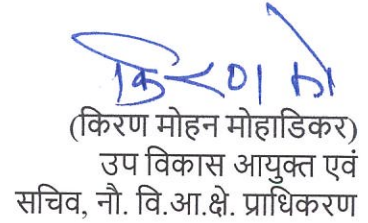 किरण मो
(किरण मोहन मोहाडिकर)
उप विकास आयुक्त एवं
सचिव, नौ. वि.आ.क्षे. प्राधिकरण